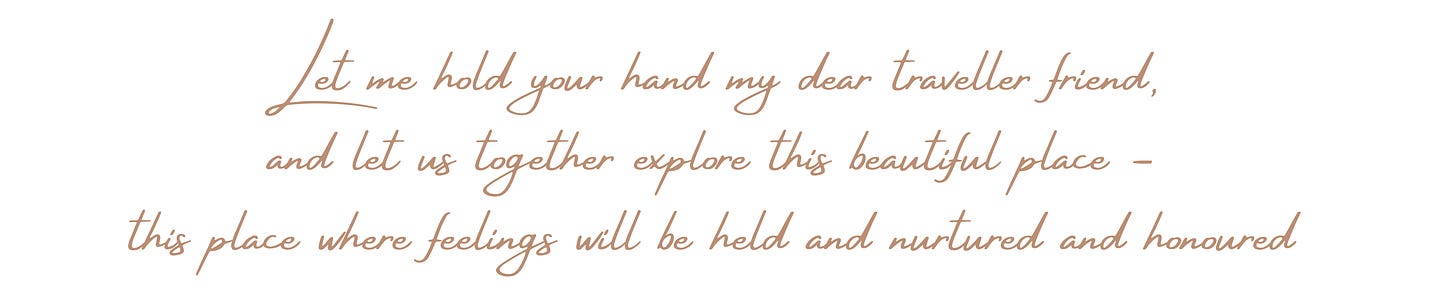 Let me hold your hand my dear traveller friend,
and let us together explore this beautiful place –
this place where feelings will be held and nurtured and honoured